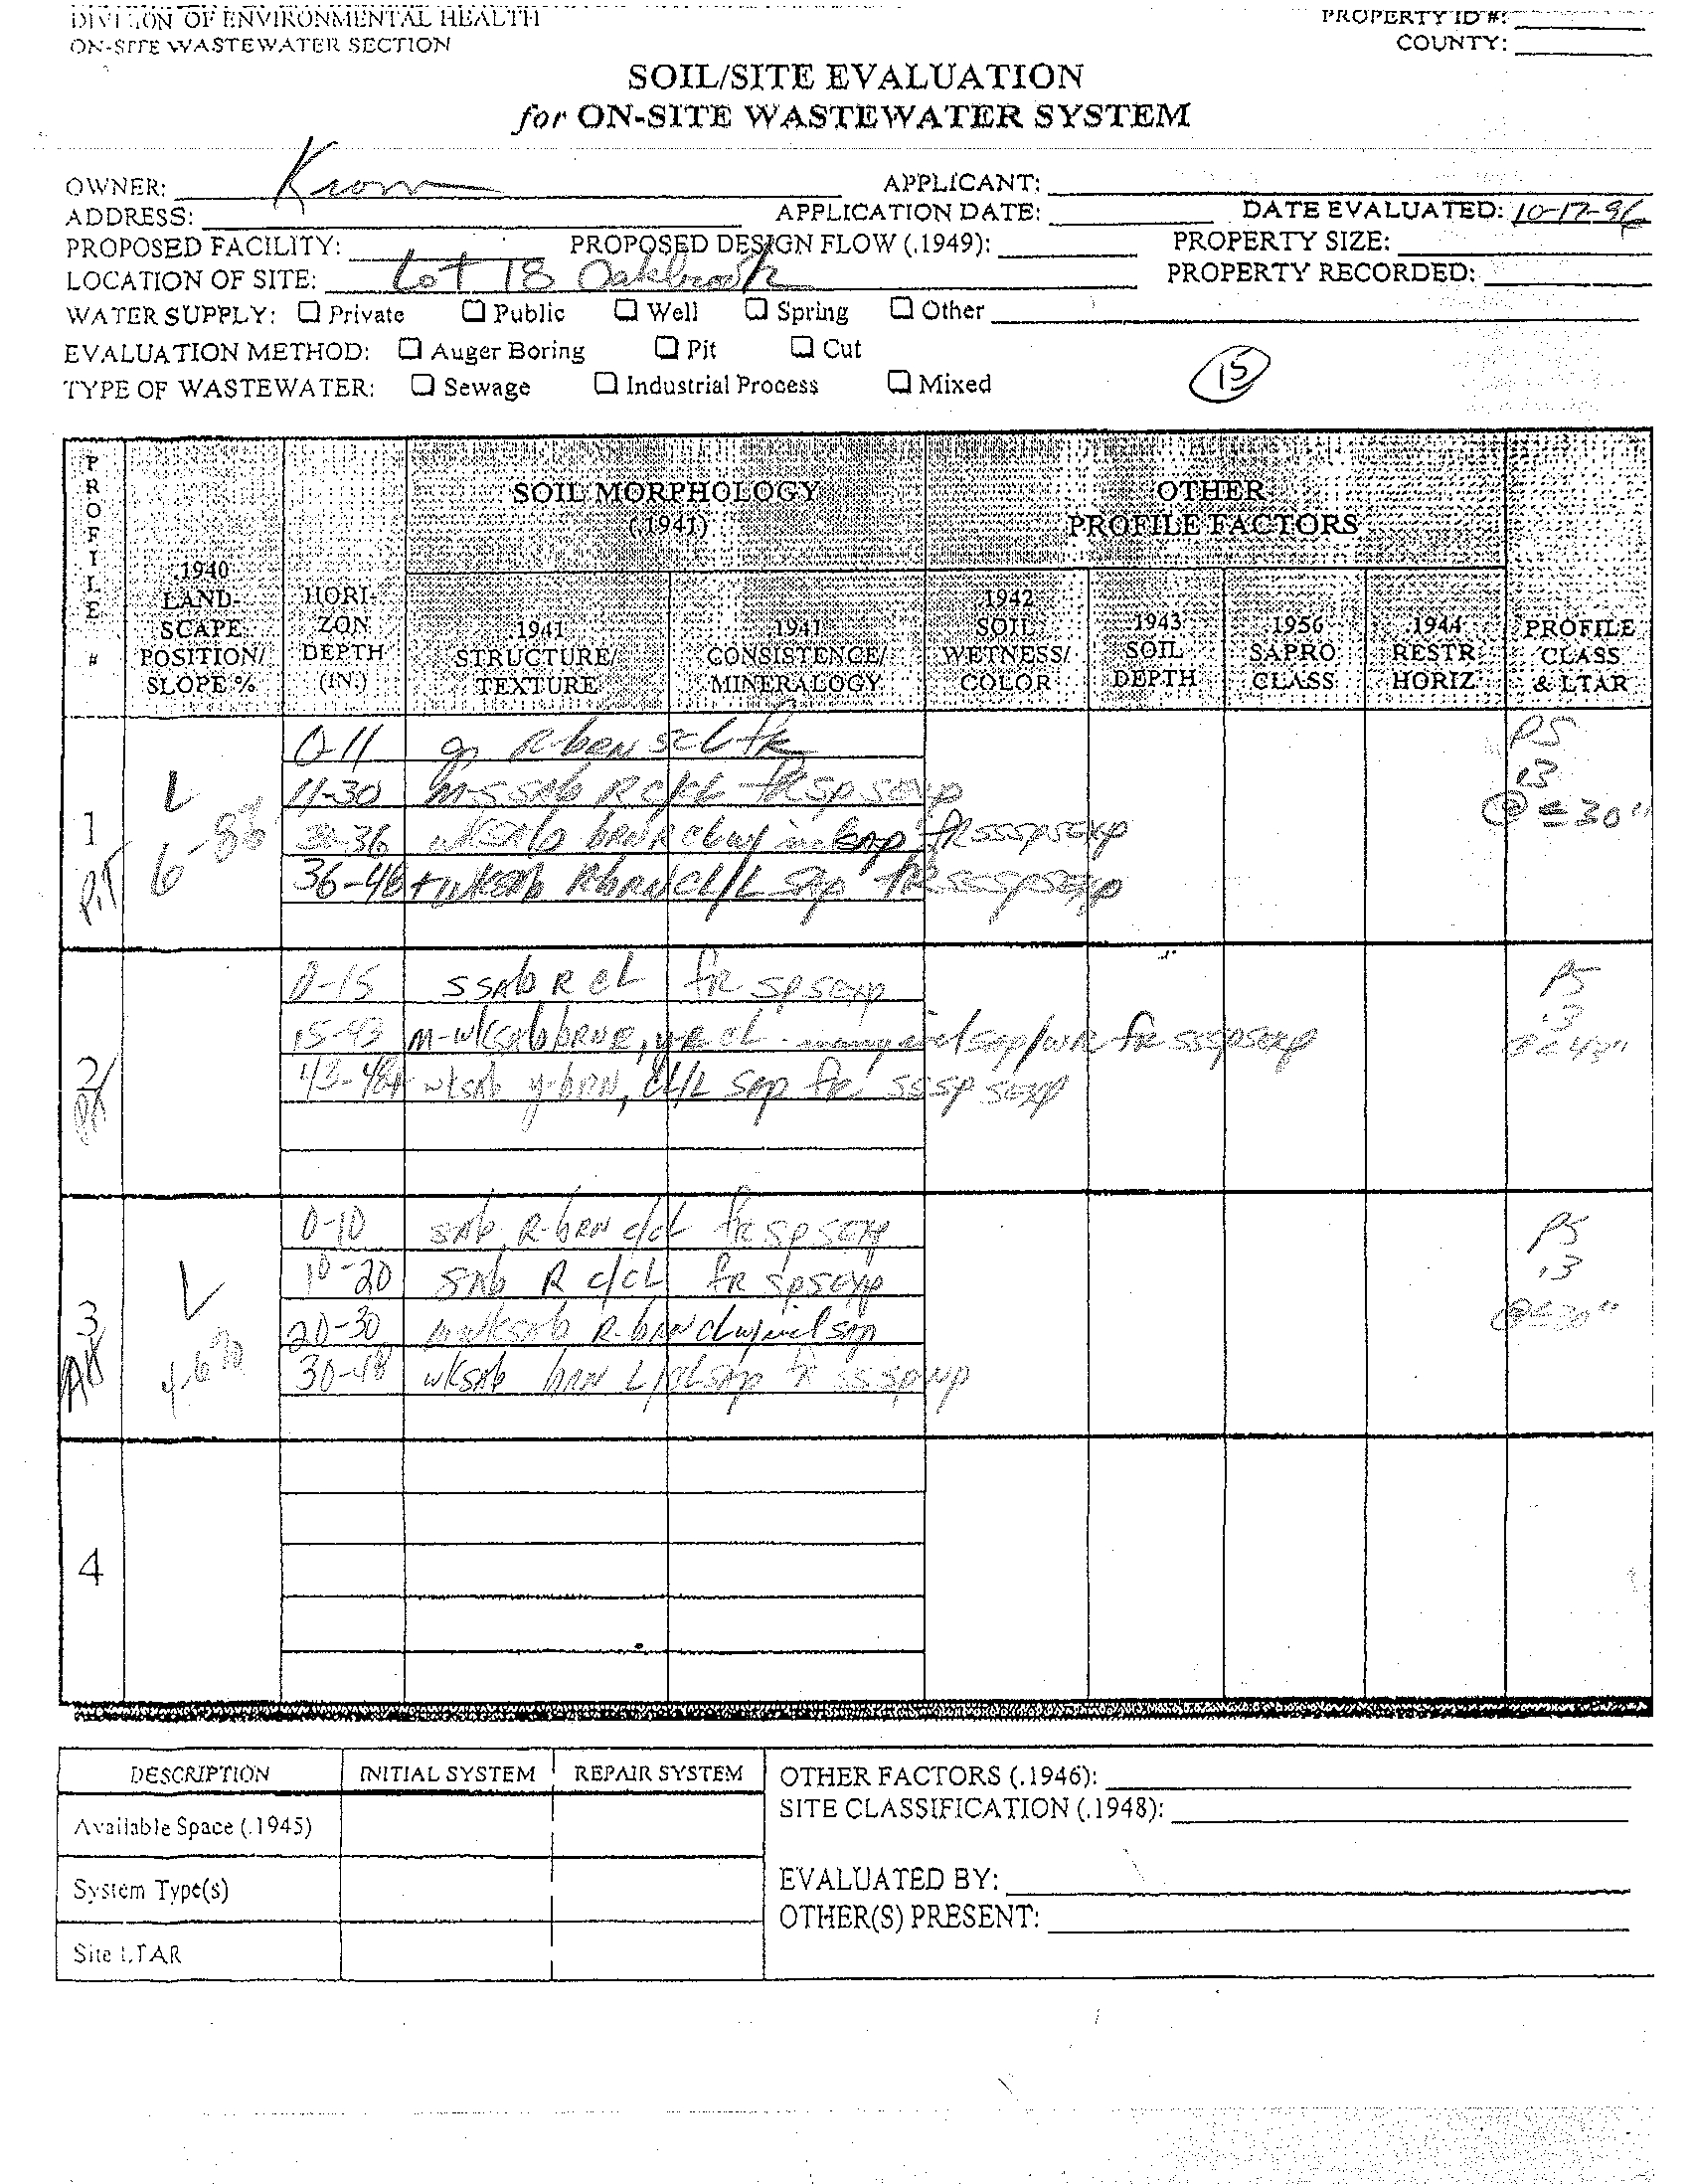 DIVISION OF ENVIRONMENTAL HEALTH
ON-SITE WASTEWATER SECTION
PROPERTY ID #:
COUNTY:
SOIL/SITE EVALUATION
for ON-SITE WASTEWATER SYSTEM
OWNER: Krom
APPLICANT:
ADDRESS:
APPLICATION DATE:
DATE EVALUATED: 10-17-96
PROPOSED FACILITY:
PROPOSED DESIGN FLOW (.1949):
PROPERTY SIZE:
LOCATION OF SITE: Lot 18 Oakbrook
PROPERTY RECORDED:
WATER SUPPLY: ☐ Private ☐ Public ☐ Well ☐ Spring ☐ Other
EVALUATION METHOD: ☐ Auger Boring ☐ Pit ☐ Cut
TYPE OF WASTEWATER: ☐ Sewage ☐ Industrial Process ☐ Mixed
15
PROFILE #
.1940 LAND-SCAPE POSITION/ SLOPE %
HORI-ZON DEPTH (IN.)
SOIL MORPHOLOGY (.1941)
.1941 STRUCTURE/ TEXTURE
.1941 CONSISTENCE/ MINERALOGY
OTHER PROFILE FACTORS
.1942 SOIL WETNESS/ COLOR
.1943 SOIL DEPTH
.1956 SAPRO CLASS
.1944 RESTR HORIZ
PROFILE CLASS & LTAR
1 Pit
L 6-8%
0-11 gr R-brn SCL fr
11-30 m-ssab R c/cl fr sp sexp
30-36 wksab brn R cl w/ sap fr sssp sexp
36-48+ wksab R-brn cl/L sap fr sssp sexp
PS .3 @ ≤ 30"
2 Pit
0-15 ssab R cl fr sp sexp
15-43 m-wksab brn R, y-R cl many incl sap/ fr sssp sexp
43-48+ wksab y-brn, cl/L sap fr sssp sexp
PS .3 @ ≤ 48"
3
L 4-6%
0-10 sab R-brn c/cl fr sp sexp
10-20 sab R c/cl fr sp sexp
20-30 mwksab R-brn cl w/ incl sap
30-48 wksab brn L/cl sap fr sssp
PS .3 @ ≤ 30"
4
DESCRIPTION INITIAL SYSTEM REPAIR SYSTEM
Available Space (.1945)
System Type(s)
Site LTAR
OTHER FACTORS (.1946):
SITE CLASSIFICATION (.1948):
EVALUATED BY:
OTHER(S) PRESENT: